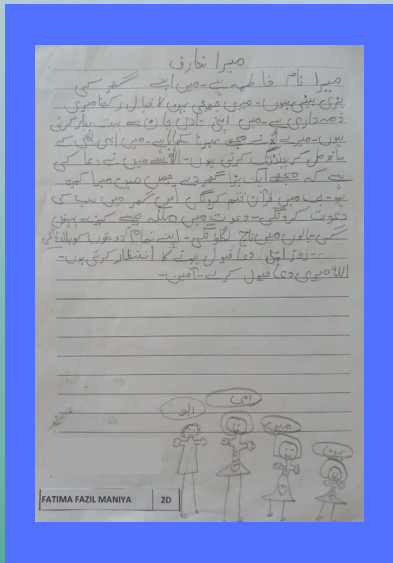 میرا تعارف
میرا نام فاطمہ ہے۔ میں اپنے گھر کی
بڑی بیٹی ہوں۔ میری چھوٹی بہن کا خیال رکھنا میری
ذمہ داری ہے۔ میں اپنی دادی جان سے بہت پیار کرتی
ہوں۔ میرے ابو نے مجھے سکھایا ہے۔ میں اپنی امی کے
ساتھ مل کر پینٹنگ کرتی ہوں۔ اللہ سے میں نے دعا کی
ہے کہ مجھے ایک بڑا گھر دیں جس میں میرا کمرہ
ہو۔ جب میں قرآن ختم کرونگی اس گھر میں سب کی
دعوت کرونگی۔ دعوت میں ملکہ جیسے کپڑے پہنوں
گی بالوں میں تاج لگاؤنگی۔ اپنے تمام دوستوں کو بلاؤنگی
۔ روز اپنی دعا قبول ہونے کا انتظار کرتی ہوں۔
اللہ میری دعا قبول کرے۔ آمین۔
ابو امی میں
FATIMA FAZIL MANIYA 2D